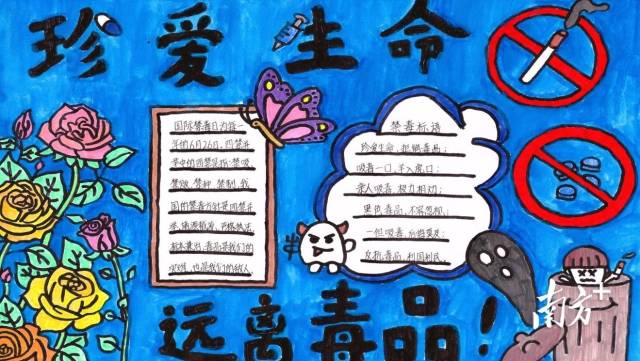 珍爱生命
国际禁毒日为每一
年的6月26日，四禁并
举中的四禁是指：禁吸
禁贩、禁种、禁制，我
国的禁毒方针是四禁并
举、堵源截流、严格执法
标本兼治，毒品是我们的
也是我们的敌人
禁毒标语
珍爱生命，拒绝毒品；
吸毒一口，入虎口；
亲人吸毒，极力相劝；
黑色毒品，不容忽视；
一但吸毒，
反抗毒品，利国利民
远离毒品！
南方+